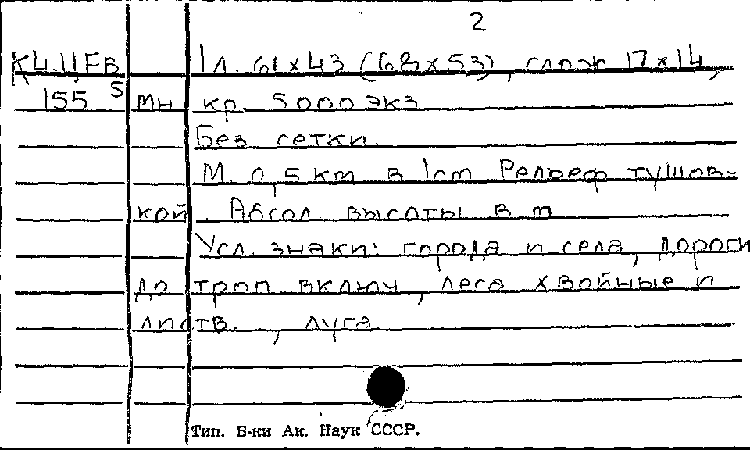 2
К4.11Fв 1 л. 61×43 (68×53), слож 17×14,
155 5 Мн кр. 5000 экз
Без сетки
М. 0,5 км в 1 см Рельеф тушов-
кой. Абсол высоты в м
Усл. знаки: города и села, дороги
до троп включ, леса хвойные и
листв. , луга
Тип. Б-ки Ак. Наук СССР.